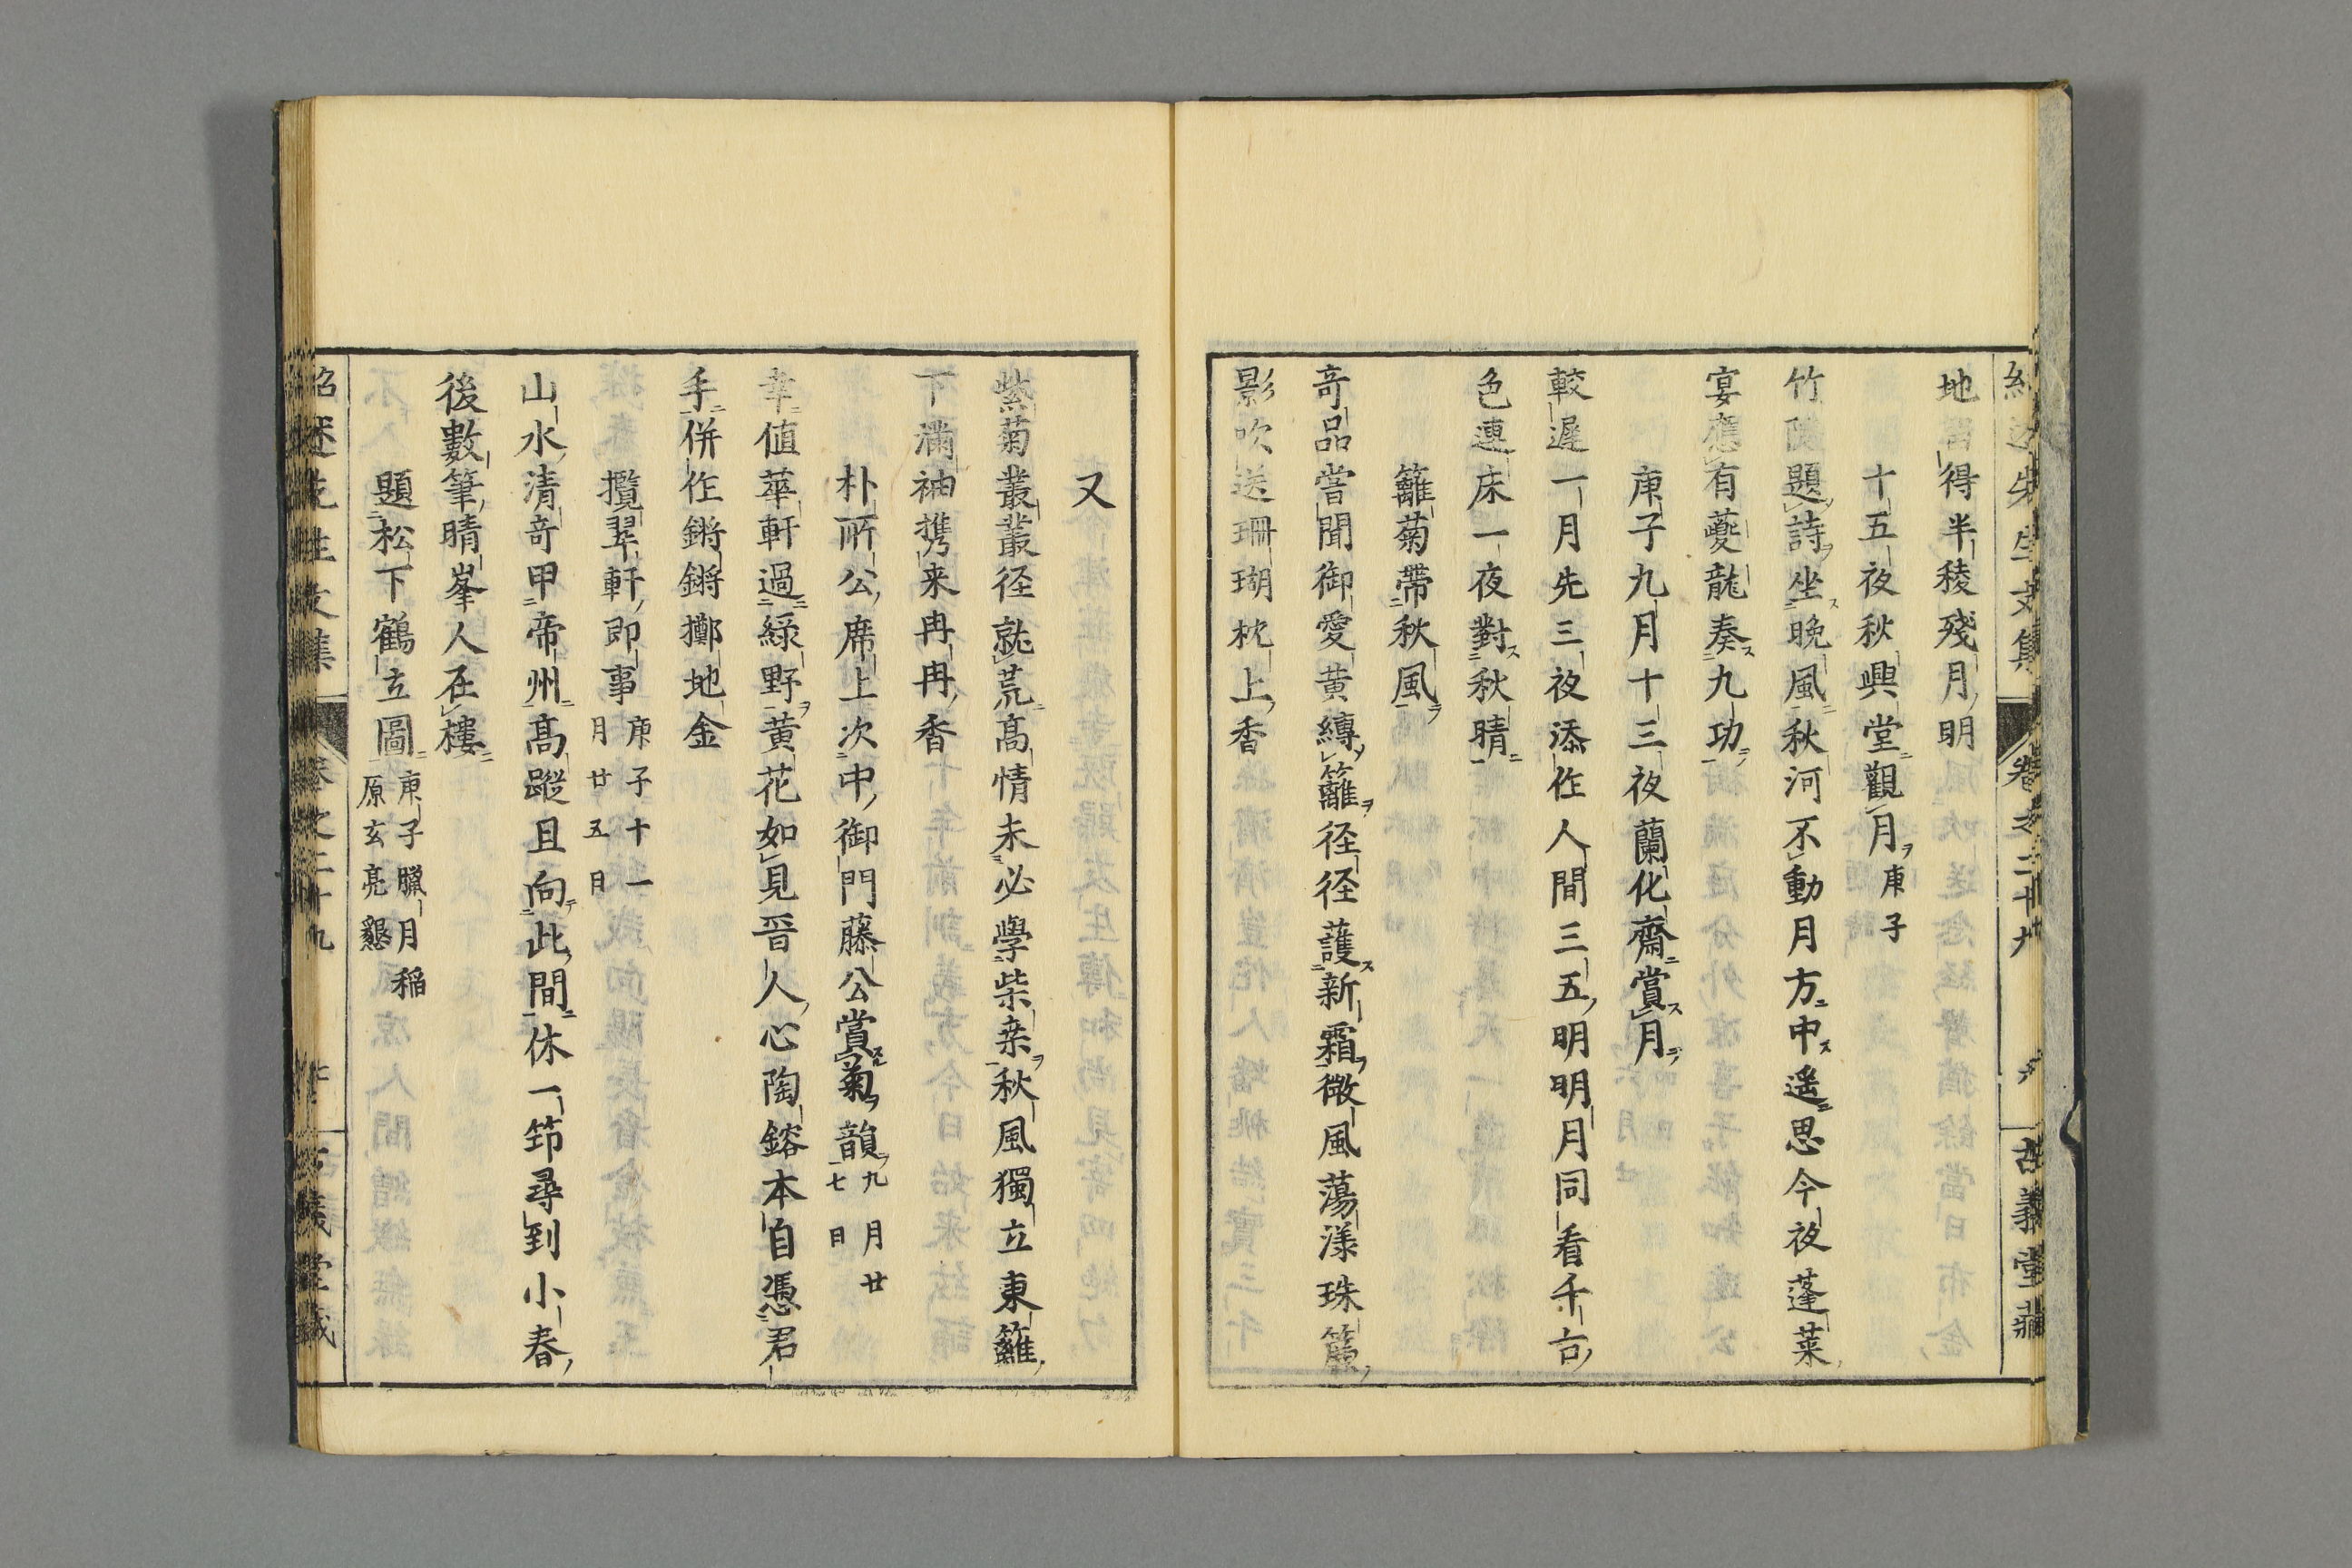 地留得半稜殘月明
十五夜秋興堂觀月庚子
竹陰題詩坐晚風秋河不動月方中遥思今夜蓬莱
宴應有夔龍奏九功
庚子九月十三夜蘭化齋賞月
較遲一月先三夜添作人間三五明明月同看千古
色連床一夜對秋晴
籬菊帶秋風
奇品嘗聞御愛黄縳籬径径護新霜微風蕩漾珠簾
影吹送珊瑚枕上香
古義堂藏
又
紫菊叢叢径就荒髙情未必學柴桒秋風獨立東籬
下滿袖携来冉冉香
朴所公席上次中御門藤公賞菊韻九月廿
七日
幸值華軒過綠野黄花如見晋人心陶鎔本自憑君
手併作鏘鏘擲地金
攬翠軒即事庚子十一
月廿五日
山水清奇甲帝州髙蹤且向此間休一笻尋到小春
後數筆晴峯人在樓
題松下鶴立圖庚子臘月稲
原玄亮懇
紹述先生文集 卷之二十九 古義堂藏